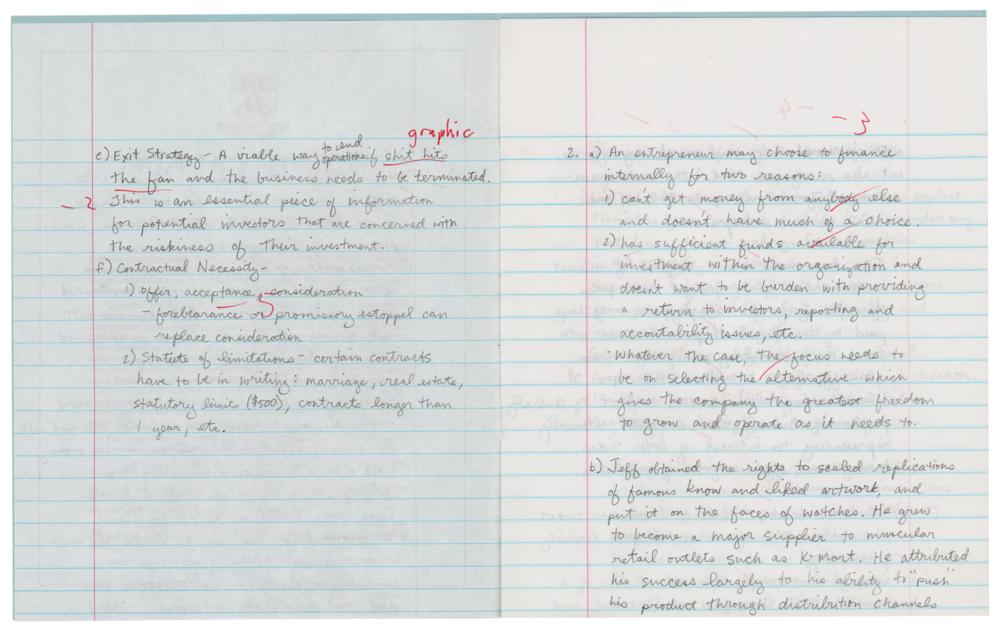 graphic
e) Exit Strategy - A viable way to end operations if shit hits
the fan and the business needs to be terminated.
- 2 This is an essential piece of information
for potential investors that are concerned with
the riskiness of their investment.
f) Contractual Necessity -
1) offer, acceptance, consideration
- forebearance or promissory estoppel can
replace consideration
2) Statets of limitations - certain contracts
have to be in writing: marriage, real estate,
statutory limits ($500), contracts longer than
1 year, etc.
- 3
2. a) An entrepreneur may choose to finance
internally for two reasons:
1) can't get money from anybody else
and doesn't have much of a choice.
2) has sufficient funds available for
investment within the organization and
doesn't want to be burden with providing
a return to investors, reporting and
accountability issues, etc.
· Whatever the case, the focus needs to
be on selecting the alternative which
gives the company the greatest freedom
to grow and operate as it needs to.
b) Jeff obtained the rights to scaled replications
of famous know and liked artwork, and
put it on the faces of watches. He grew
to become a major supplier to
retail outlets such as K-Mart. He attributed
his success largely to his ability to "push"
his product through distribution channels